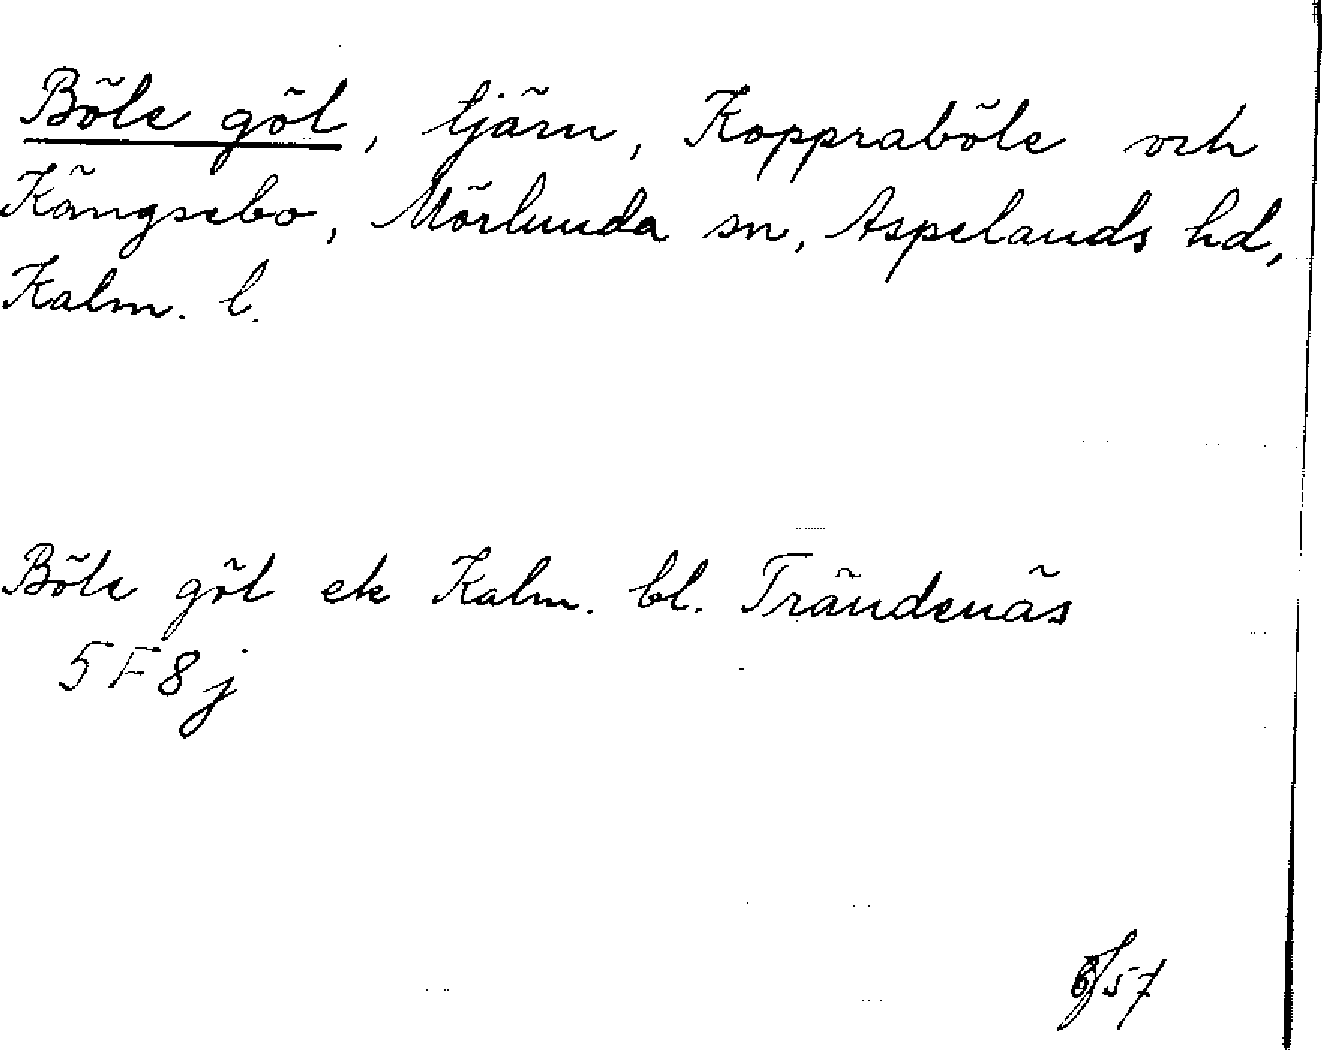 Böle göl, tjärn, Koppraböle och
Kängsebo, Mörlunda sn, Aspelands hd,
Kalm. l.
Böle göl ek Kalm. bl. Trändenäs
5F8j